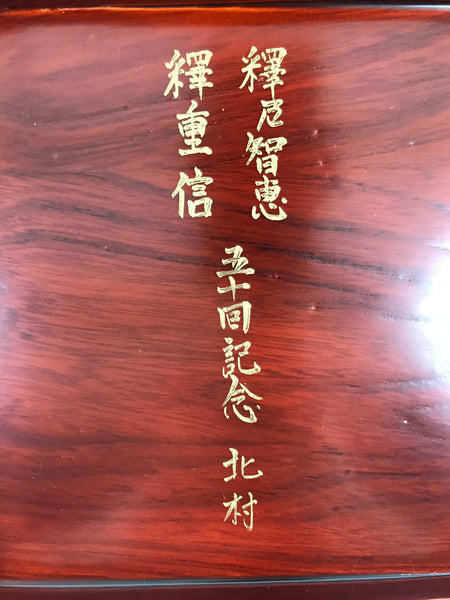 釋尼智恵
釋重信
五十回記念 北村